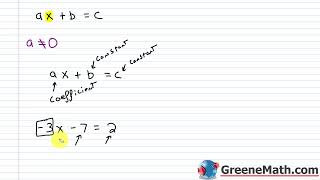 ax + b = c
a ≠ 0
constant
ax + b = c constant
coefficient
-3x - 7 = 2
GreeneMath.com